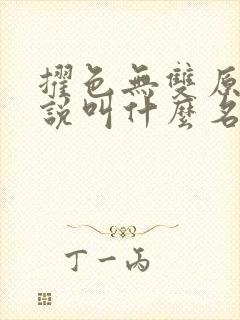 擢色無雙原
說叫什麼名
丁一丙